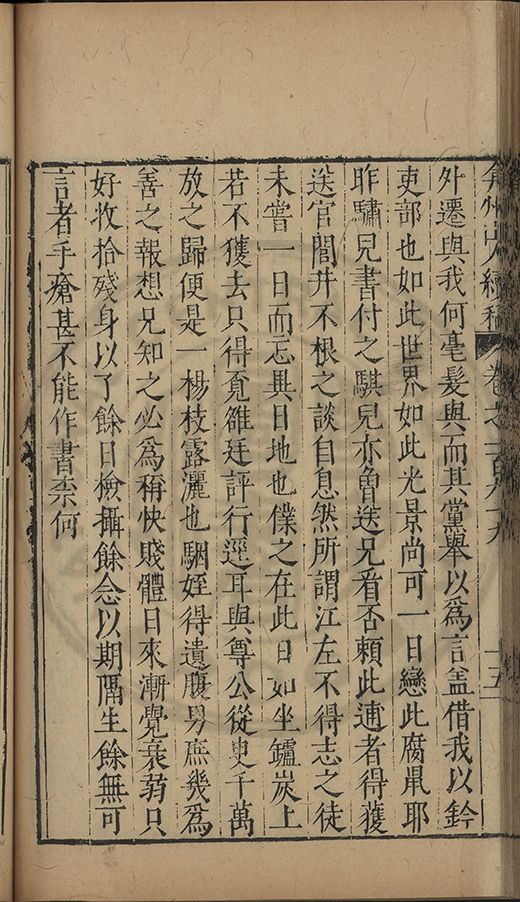 弇州山人續稿 卷之一百九十九 十五
外遷與我何毫髮與而其黨舉以爲言盖借我以鈐
吏部也如此世界如此光景尚可一日戀此腐鼠耶
昨驌兒書付之騏兒亦曾送兄看否賴此逋者得獲
送官閭井不根之談自息然所謂江左不得志之徒
未嘗一日而忘異日地也僕之在此日如坐鑪炭上
若不獲去只得覔雒廷評行逕耳與尊公從臾千萬
放之歸便是一楊枝露灑也駰姪得遺腹男庶幾爲
善之報想兄知之必爲稱快賤體日來漸覺衰弱只
好收拾殘身以了餘日檢攝餘念以期隔生餘無可
言者手瘡甚不能作書柰何